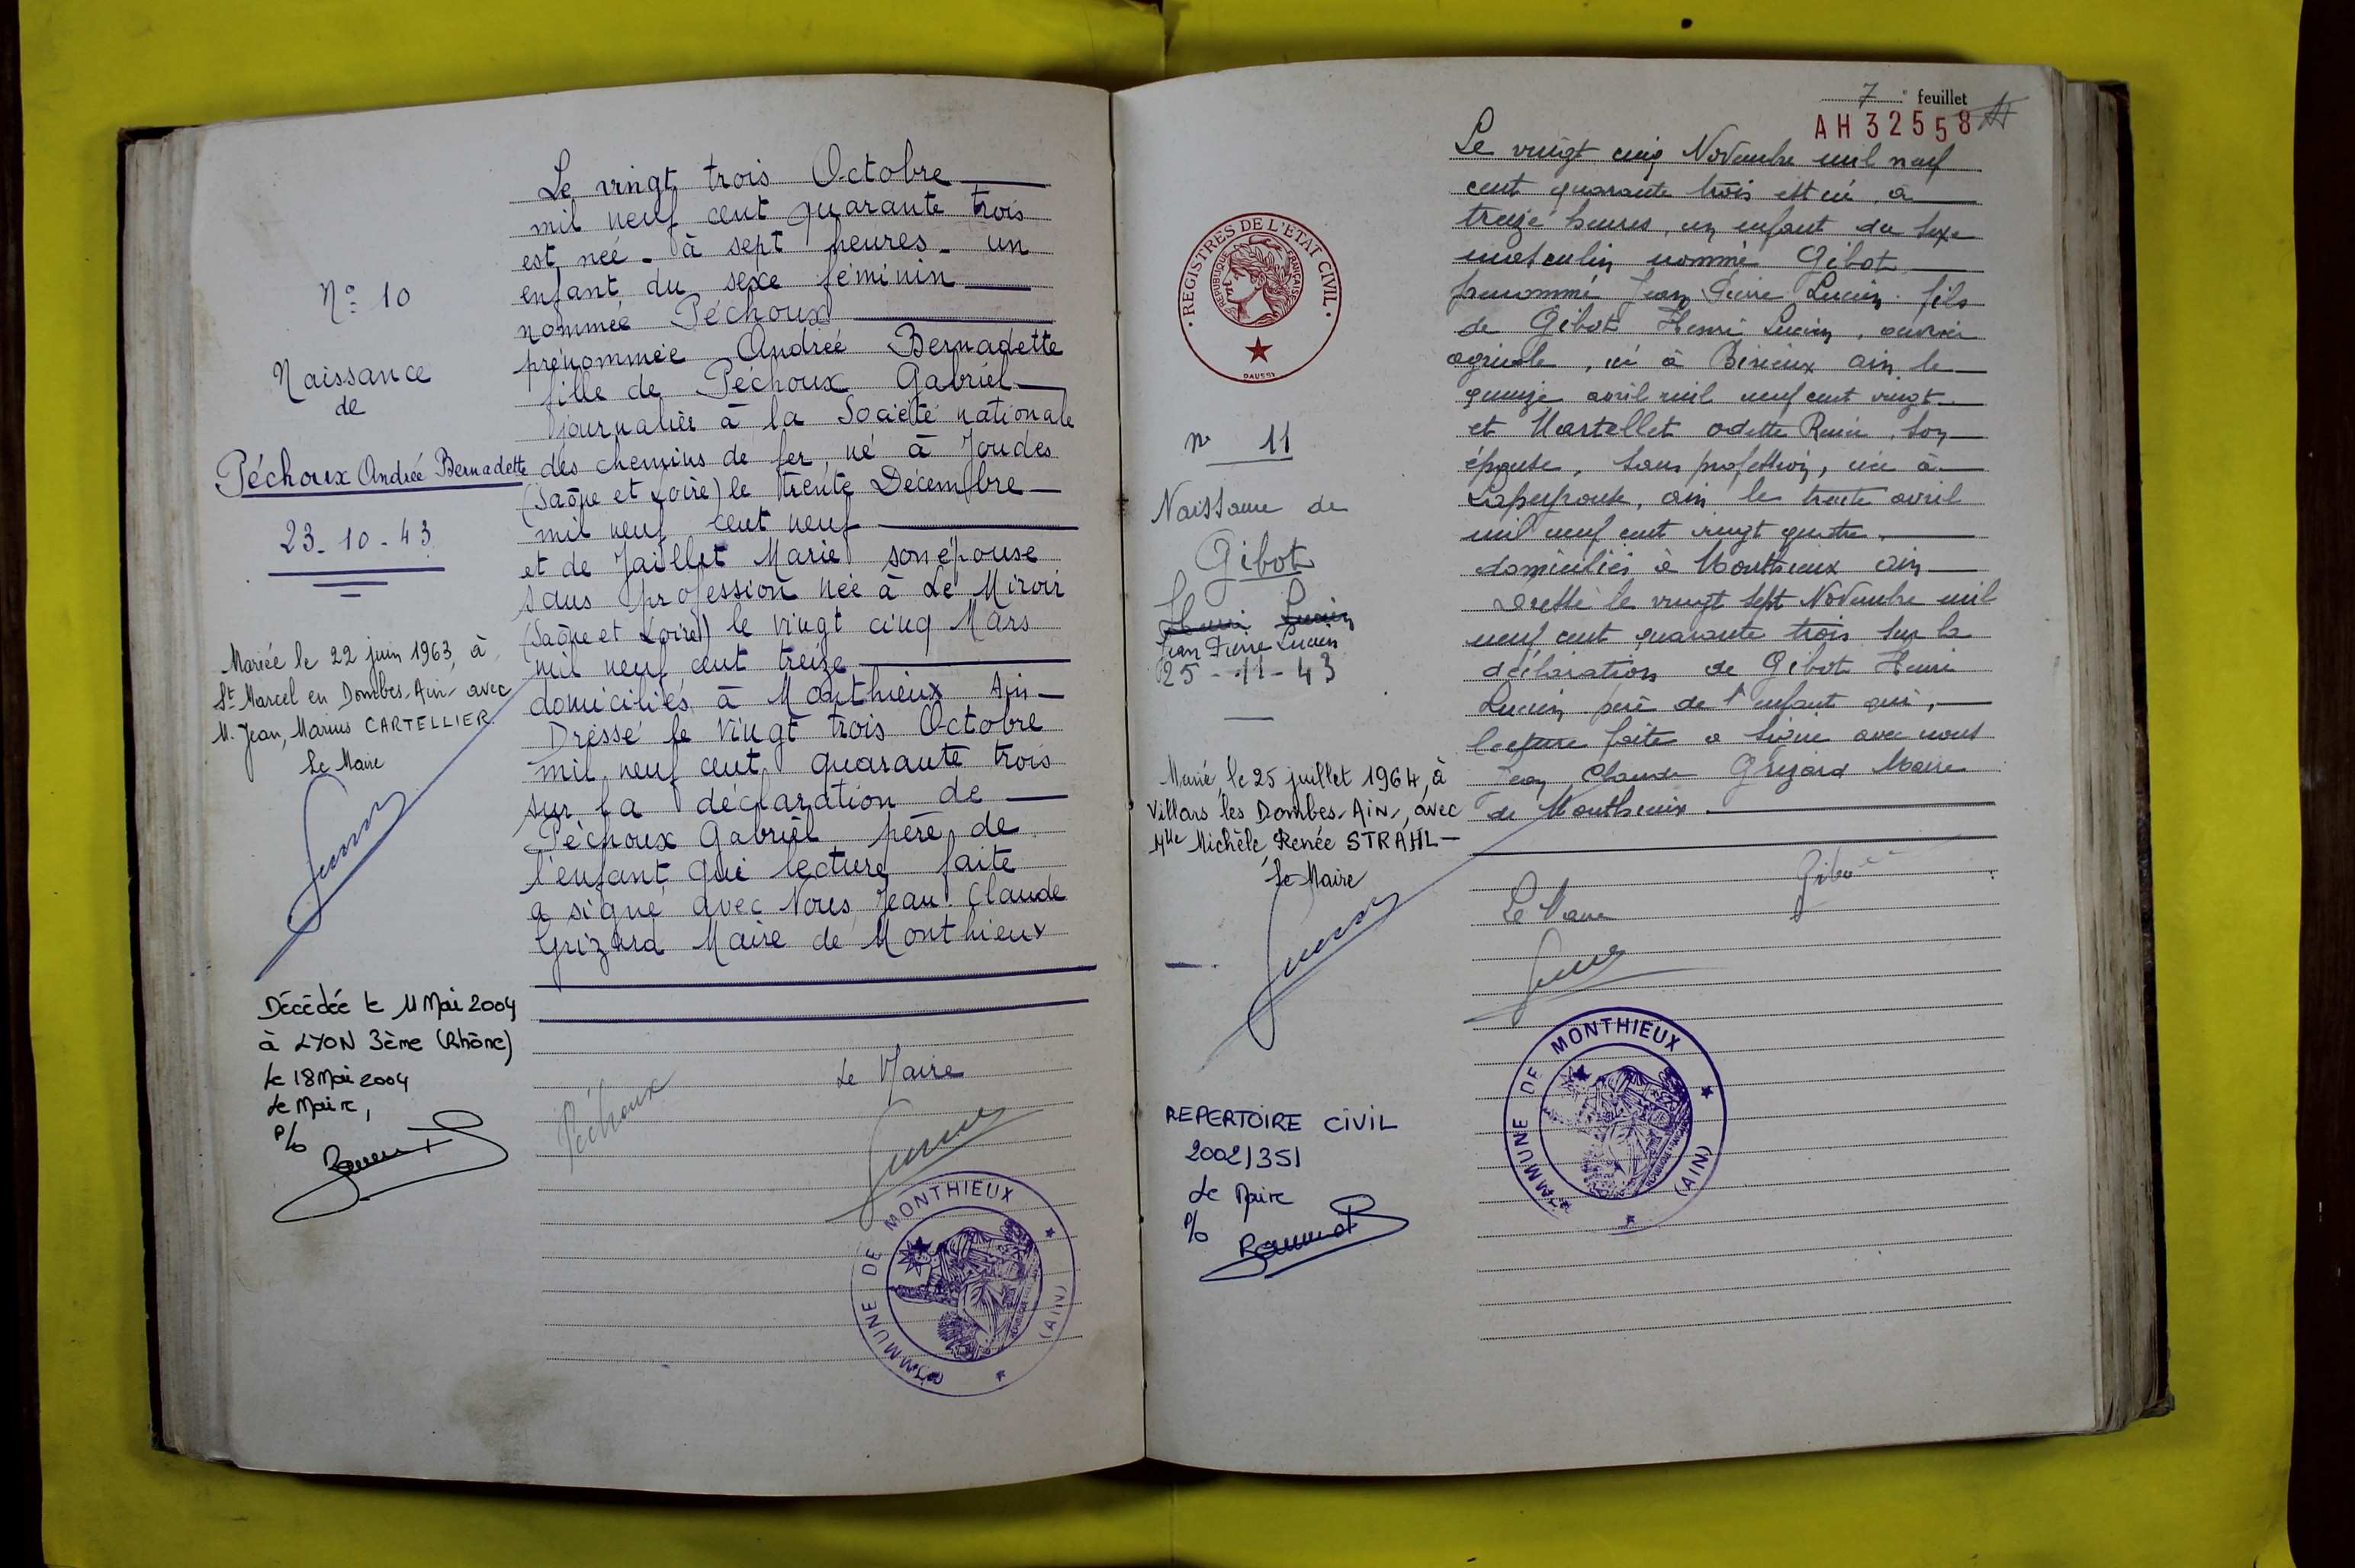 N° 10
Naissance
de
Péchoux Andrée Bernadette
23-10-43
Mariée le 22 juin 1963, à
St Marcel en Dombes-Ain- avec
M. Jean, Marius CARTELLIER.
Le Maire
Décédée le 11 Mai 2004
à LYON 3ème (Rhône)
Le 18 Mai 2004
Le Maire,
P/o
Le vingt trois Octobre
mil neuf cent quarante trois
est née - à sept heures - un
enfant du sexe féminin
nommée Péchoux
prénommée Andrée Bernadette
fille de Péchoux Gabriel
journalier à la Société nationale
des chemins de fer, né à Joudes
(Saône et Loire) le trente Décembre
mil neuf cent neuf
et de Jaillet Marie son épouse
sans profession née à Le Miroir
(Saône et Loire) le vingt cinq Mars
mil neuf cent treize
domiciliés à Monthieux Ain
Dressé le vingt trois Octobre
mil neuf cent quarante trois
sur la déclaration de
Péchoux Gabriel père de
l'enfant qui lecture faite
a signé avec Nous Jean Claude
Grizard Maire de Monthieux
Péchoux
Le Maire
COMMUNE DE MONTHIEUX
(AIN)
7e feuillet
AH 32558
REGISTRES DE L'ETAT CIVIL
REPUBLIQUE FRANÇAISE
DAUSSY
n° 11
Naissance de
Gibot
Henri Lucien
Jean Pierre Lucien
25-11-43
Marié, le 25 juillet 1964, à
Villars les Dombes-Ain-, avec
Mlle Michèle Renée STRAHL-
Le Maire
REPERTOIRE CIVIL
2002/351
Le Maire
P/o
Le vingt cinq Novembre mil neuf
cent quarante trois est né, à
treize heures, un enfant du sexe
masculin nommé Gibot
prénommé Jean Pierre Lucien fils
de Gibot Henri Lucien, ouvrier
agricole, né à Birieux ain le
quinze avril mil neuf cent vingt
et Martellet odette Renée, son
épouse, sans profession, née à
Lapeyrouse, ain le trente avril
mil neuf cent vingt quatre,
domiciliés à Monthieux ain
Dressé le vingt sept Novembre mil
neuf cent quarante trois sur la
déclaration de Gibot Henri
Lucien père de l'enfant qui,
lecture faite a signé avec nous
Jean Claude Grizard Maire
de Monthieux.
Le Maire
Gibot
COMMUNE DE MONTHIEUX
(AIN)